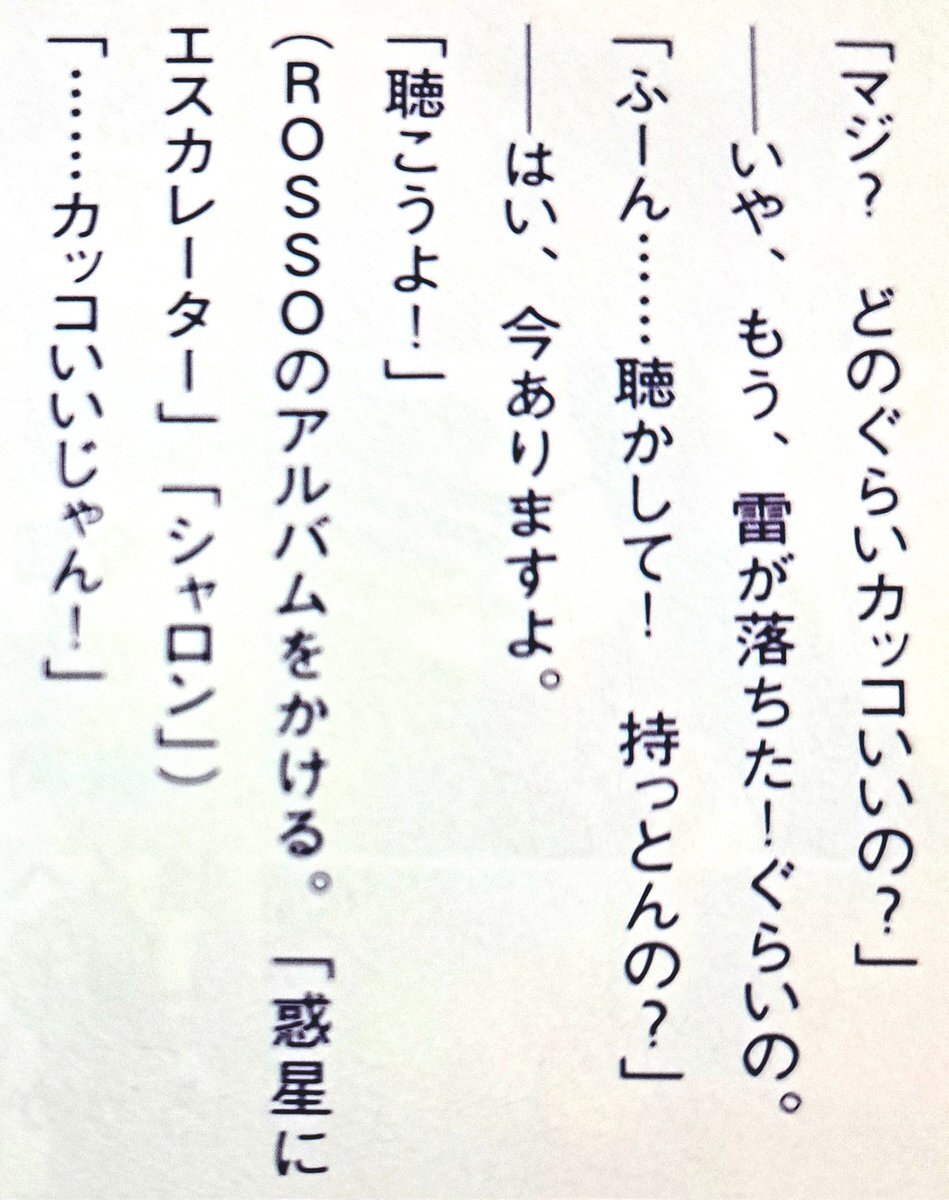 「マジ？　どのぐらいカッコいいの？」
――いや、もう、雷が落ちたーぐらいの。
「ふーん……聴かして！　持っとんの？」
――はい、今ありますよ。
「聴こうよ！」
（ＲＯＳＳＯのアルバムをかける。「惑星に
エスカレーター」「シャロン」）
「……カッコいいじゃん！」